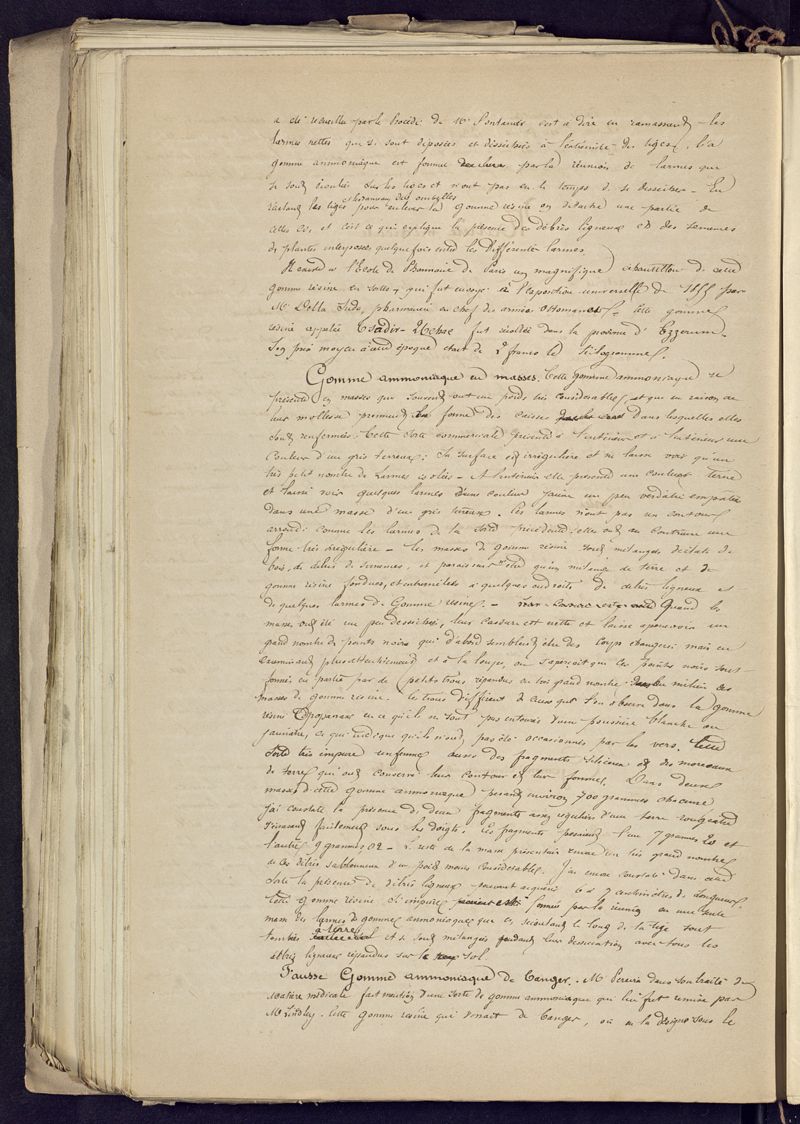 a été recueillie par le Procédé de Mr Fontanier c'est a dire en ramassant les
larmes nettes qui se sont déposées et désséchées à l'extrémité des tiges, la
gomme ammoniaque est formée par la réunion de larmes qui
se sont écoulées sur les tiges et n'ont pas eu le temps de se dessécher. En
raclant les tiges et les rameaux des ombelles pour enlever la gomme résine on détache une partie de
celles ci, et c'est ce qui explique la présence des débris ligneux et des semences
de plantes interposées quelquefois entre les différentes larmes.
Il existe a l'Ecole de Pharmacie de Paris un magnifique échantillon de cette
gomme résine en sorte, qui fut envoyé à l'Exposition universelle de 1855 par
Mr Della Suda, pharmacien en chef des armées Ottomanes. Cette gomme
résine appelée fut récoltée dans la province d'Ezzeroum.
Son prix moyen à cette époque était de 2 francs le Kilogramme.
Gomme ammoniaque en masses. Cette gomme ammoniaque se
présente en masses qui souvent ont un poids très considérable, et que en raison de
leur mollesse prennent la forme des caisses dans lesquelles elles
sont renfermées. Cette sorte commerciale présente à l'extérieur et à l'intérieur une
couleur d'un gris terreux; sa surface est irrégulière et ne laisse voir qu'un
très petit nombre de larmes isolées - A l'intérieur elle présente une couleur terne
et laisse voir quelques larmes d'une couleur jaune un peu verdatre empatées
dans une masse d'un gris terreux. Ces larmes n'ont pas un contour
arrondi comme les larmes de la sorte précédente; elles ont au contraire une
forme très irrégulière - les masses de gomme résine sont mélangées d'éclats de
bois, de débris de semences, et paraissent n'être qu'un mélange de terre et de
gomme résine fondues, et entremêlées à quelques endroits de débris ligneux et
de quelques larmes de Gomme résine. - Quand les
masses ont été un peu desséchées, leur cassure est nette et laisse apercevoir un
grand nombre de points noirs qui d'abord semblent être des corps étrangers mais en
examinant plus attentivement et à la loupe, on s'aperçoit que ces points noirs sont
formés en partie par de petits trous répandus en très grand nombre au milieu des
masses de gomme résine. Ces trous diffèrent de ceux que l'on observe dans la gomme
résine Opopanax en ce qu'ils ne sont pas entourés d'une poussière blanche ou
jaunâtre, ce qui indique qu'ils n'ont pas été occasionnés par les vers. Cette
sorte très impure renferme aussi des fragments siliceux et des morceaux
de terre qui ont conservé leur contour et leur forme. Dans deux
masses d'cette gomme ammoniaque pesant environ 700 grammes chacune
j'ai constaté la présence de deux fragments assez réguliers d'une terre rougeatre
s'écrasant facilement sous les doigts. Ces fragments pesaient l'un 7 grammes 20 et
l'autre 9 grammes 02 - Le reste de la masse présentait encore un très grand nombre
de ces débris sablonneux d'un poids moins considérable. J'ai encore constaté dans cette
sorte la présence de débris ligneux pouvant acquérir 6 à 7 centimètres de longueur
Cette gomme résine si impure est formée par la réunion en une seule
masse des larmes de gomme ammoniaque qui en s'écoulant le long de la tige sont
tombées a terre et se sont mélangées pendant leur dessiccation avec tous les
débris ligneux répandus sur le sol.
Fausse Gomme ammoniaque de Tanger. Mr Pereira dans son traité de
Matière médicale fait mention d'une sorte de gomme ammoniaque qui lui fut remise par
Mr Lindley. Cette gomme résine qui venait de Tanger, où on la désigne sous le